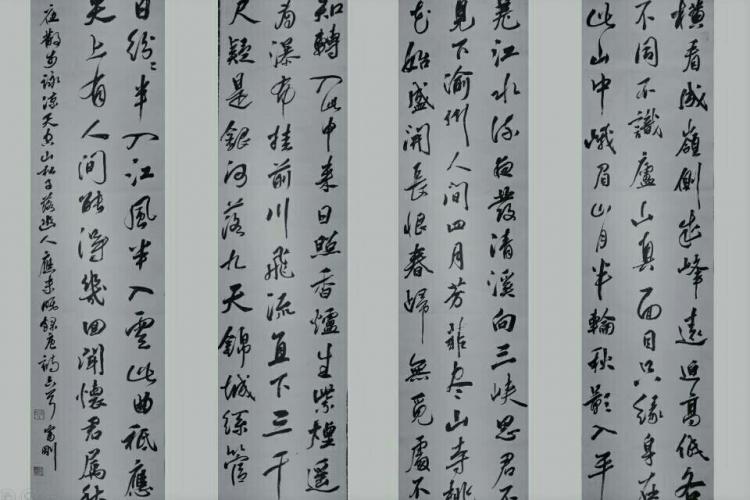 横看成嶺側成峰遠近高低各
不同不識廬山真面目只緣身在
此山中峨眉山月半輪秋影入平
羌江水流夜發清溪向三峽思君不
見下渝州人間四月芳菲盡山寺桃
花始盛開長恨春歸無覓處不
知轉入此中来日照香爐生紫煙遥
看瀑布挂前川飛流直下三千
尺疑是銀河落九天錦城絲管
日紛々半入江風半入雲此曲祗應
天上有人間能得幾回聞懷君屬秋
夜散步詠涼天空山松子落幽人應未眠録唐詩六首